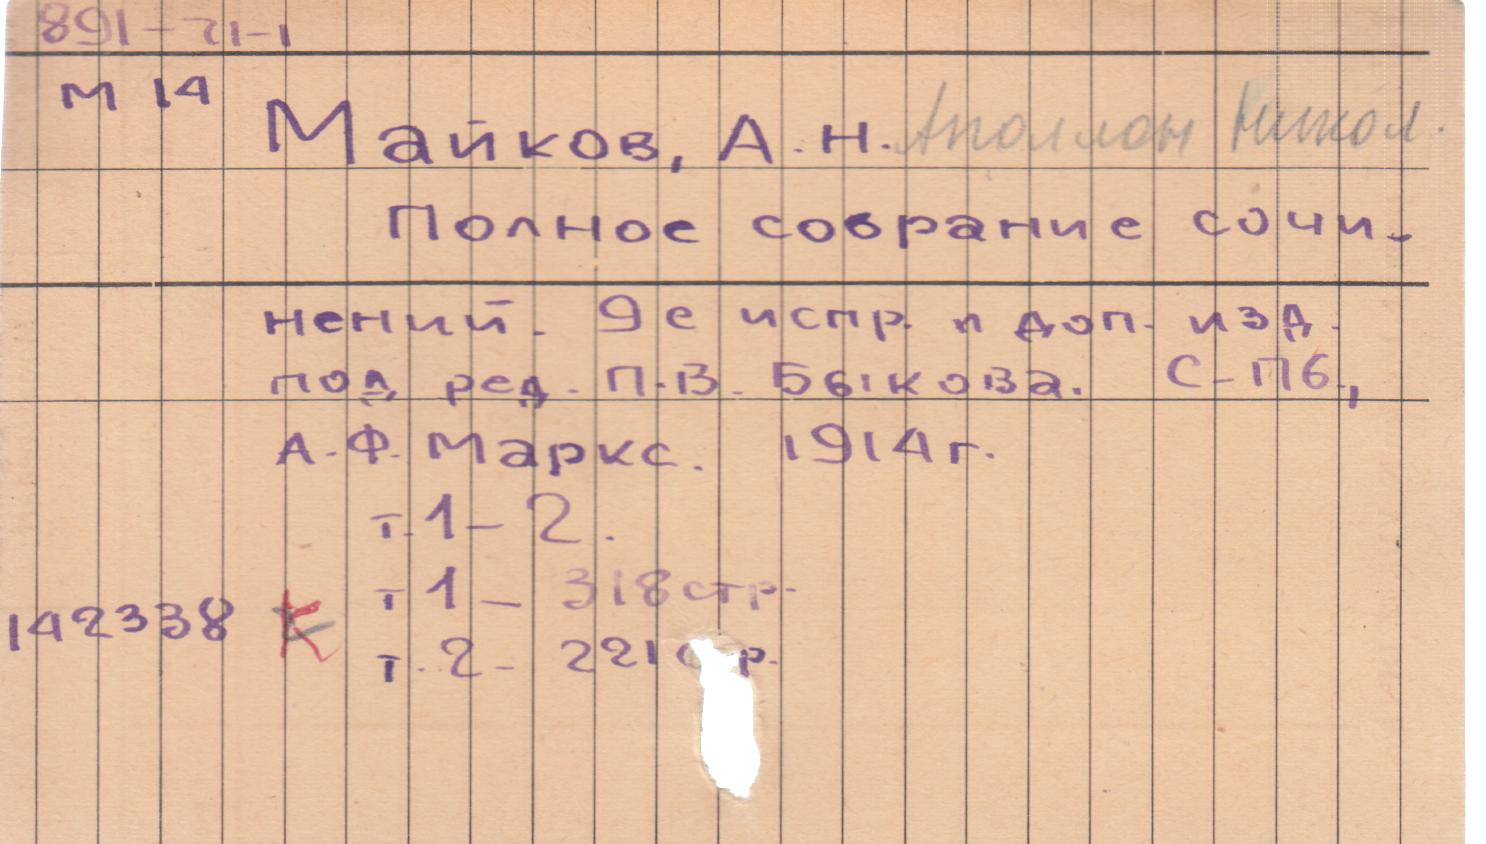 891-71-1
М 14
Майков, А.Н. Аполлон Никол.
Полное собрание сочи-
нений. 9е испр. и доп. изд.
под ред. П.В. Быкова. С-Пб.,
А.Ф. Маркс. 1914г.
т.1-2.
т 1- 318стр.
142338 К
т.2- 221стр.